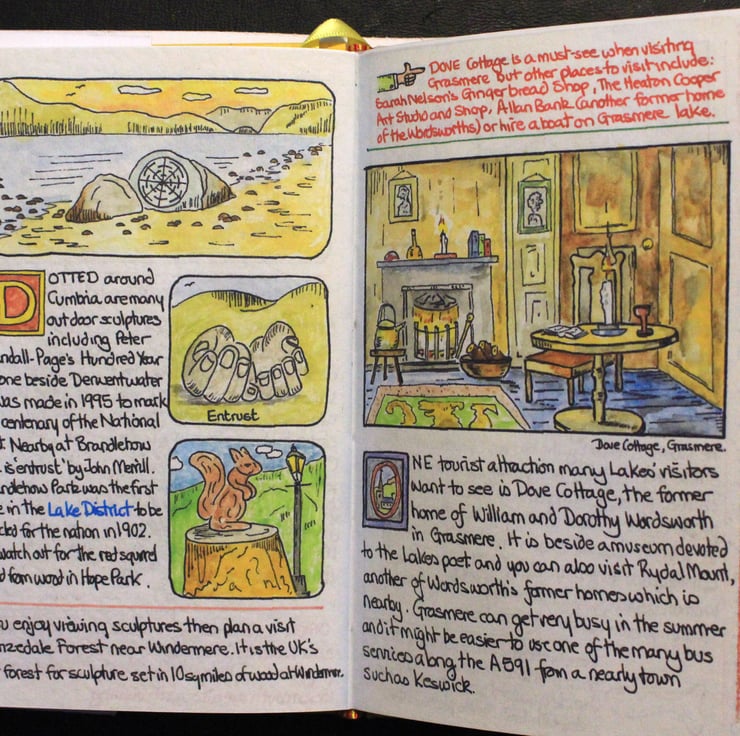 DOTTED around
Cumbria are many
outdoor sculptures
including Peter
ndall-Page's Hundred Year
one beside Derwentwater
was made in 1995 to mark
centenary of the National
t Nearby at Brandlehow
is 'entrust' by John Merrill.
ndlehow Park was the first
e in the Lake District to be
ed for the nation in 1902.
watch out for the red squirrel
d from wood in Hope Park.
Entrust
u enjoy viewing sculptures then plan a visit
nzedale Forest near Windermere. It is the UK's
forest for sculpture set in 10sqmiles of wood at Windermere.
DOVE Cottage is a must-see when visiting
Grasmere but other places to visit include:
Sarah Nelson's Gingerbread Shop, The Heaton Cooper
Art Studio and Shop, Allan Bank (another former home
of the Wordsworths) or hire a boat on Grasmere lake.
Dove Cottage, Grasmere.
ONE tourist attraction many Lakes' visitors
want to see is Dove Cottage, the former
home of William and Dorothy Wordsworth
in Grasmere. It is beside a museum devoted
to the Lakes poet and you can also visit Rydal Mount,
another of Wordsworth's former homes which is
nearby. Grasmere can get very busy in the summer
and it might be easier to use one of the many bus
services along the A591 from a nearby town
such as Keswick.